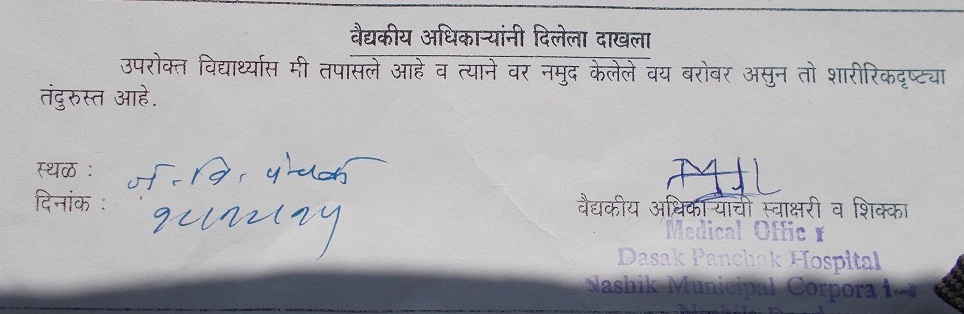 वैद्यकीय अधिकाऱ्यांनी दिलेला दाखला
उपरोक्त विद्यार्थ्यास मी तपासले आहे व त्याने वर नमुद केलेले वय बरोबर असुन तो शारीरिकदृष्ट्या
तंदुरुस्त आहे.
स्थळ :
दिनांक :
वैद्यकीय अधिकाऱ्याची स्वाक्षरी व शिक्का
Medical Offic r
Dasak Panchak Hospital
Nashik Municipal Corpora